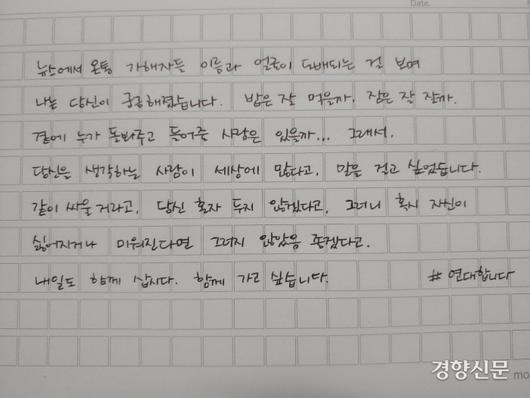 Date.
뉴스에서 온통 가해자들 이름과 얼굴이 도배되는 걸 보며
나는 당신이 궁금해졌습니다. 밥은 잘 먹을까. 잠은 잘 잘까.
곁에 누가 돌봐주고 들어줄 사람은 있을까... 그래서.
당신을 생각하는 사람이 세상에 많다고, 말을 걸고 싶었습니다.
같이 싸울 거라고, 당신 혼자 두지 않겠다고, 그러니 혹시 자신이
싫어지거나 미워진다면 그러지 않았음 좋겠다고.
내일도 함께 삽시다. 함께 가고 싶습니다. #연대합니다
경향신문
mo